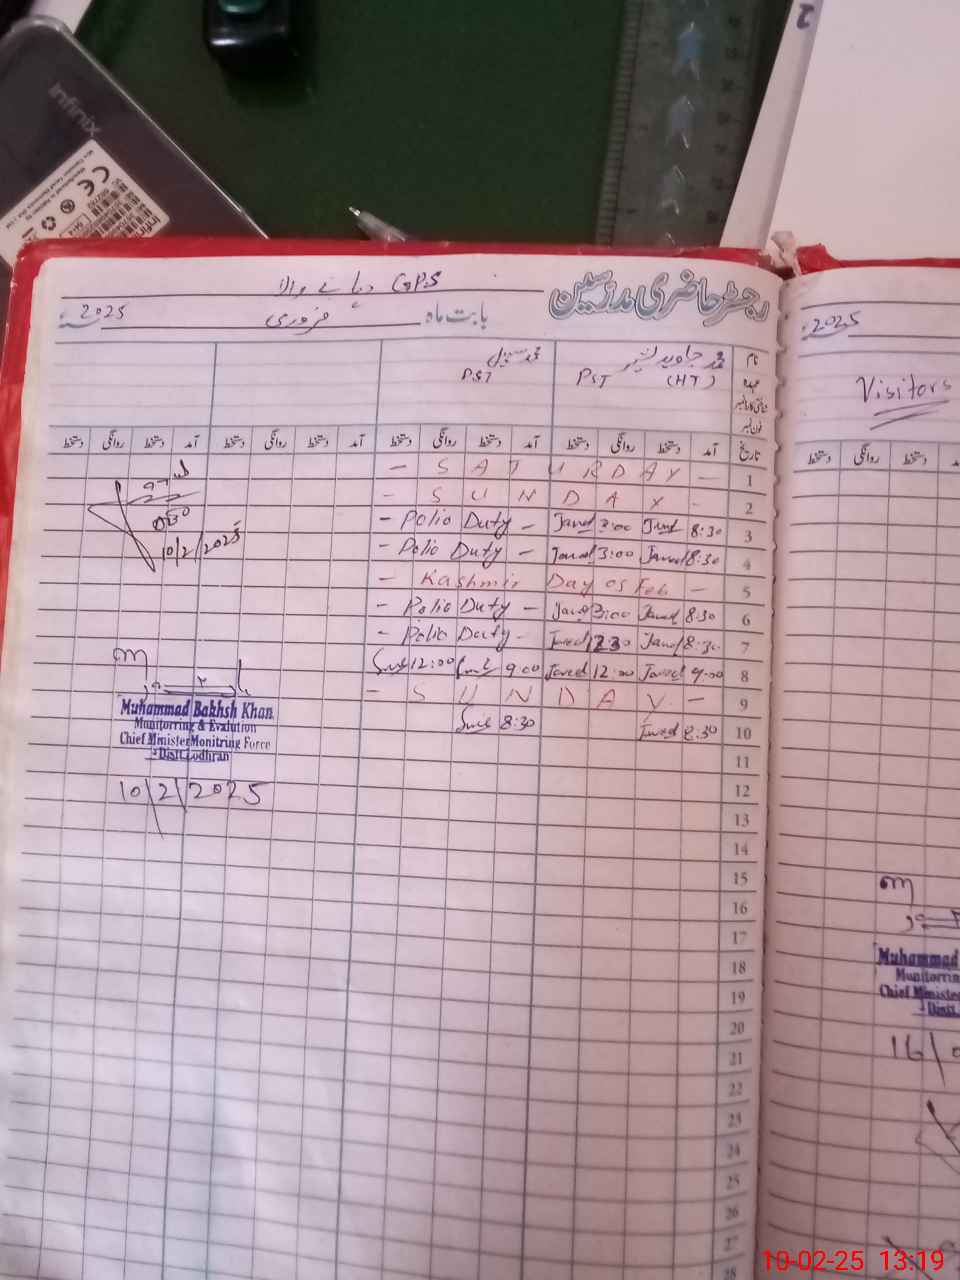 Infinix
2
رجسٹر حاضری مدرسین
GPS
والا
بابت ماہ فروری 2025
نام
عہدہ
محمد جاوید
(HT) PST
PST
تاریخ آمد دستخط روانگی دستخط آمد دستخط روانگی دستخط آمد دستخط روانگی دستخط آمد دستخط روانگی دستخط
- SATURDAY - 1
- SUNDAY - 2
- Polio Duty - Javed 3:00 Javed 8:30 3
- Polio Duty - Javed 3:00 Javed 8:30 4
- Kashmir Day 05 Feb - 5
- Polio Duty - Javed 3:00 Javed 8:30 6
- Polio Duty - Javed 12:30 Javed 8:30 7
12:00 9:00 Javed 12:00 Javed 9:00 8
- SUNDAY - 9
8:30 Javed 8:30 10
11
12
13
14
15
16
17
18
19
20
21
22
23
24
25
26
27
28
10/2/2025
Muhammad Bakhsh Khan
Monitorring & Evalution
Chief Minister Monitring Force
Distt Lodhran
10/2/2025
2025
Visitors
دستخط روانگی دستخط
Muhammad
Monitorrin
Chief Ministe
Distt
16/
10-02-25 13:19